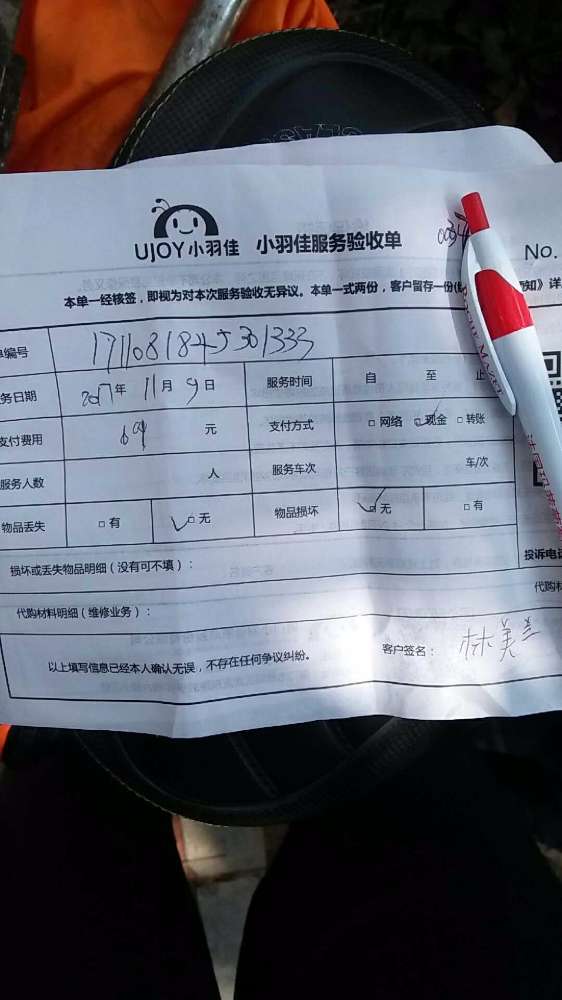 UJOY小羽佳 小羽佳服务验收单
No.
本单一经核签，即视为对本次服务验收无异议。本单一式两份，客户留存一份
知》详
单编号 17110818455301333
务日期 2017年 11月 9日 服务时间 自 至 止
支付费用 元 支付方式 □网络 □现金 □转账
服务人数 人 服务车次 车/次
物品丢失 □有 □无 物品损坏 □无 □有
投诉电
损坏或丢失物品明细（没有可不填）：
代购材
代购材料明细（维修业务）：
以上填写信息已经本人确认无误，不存在任何争议纠纷。 客户签名： 林美兰